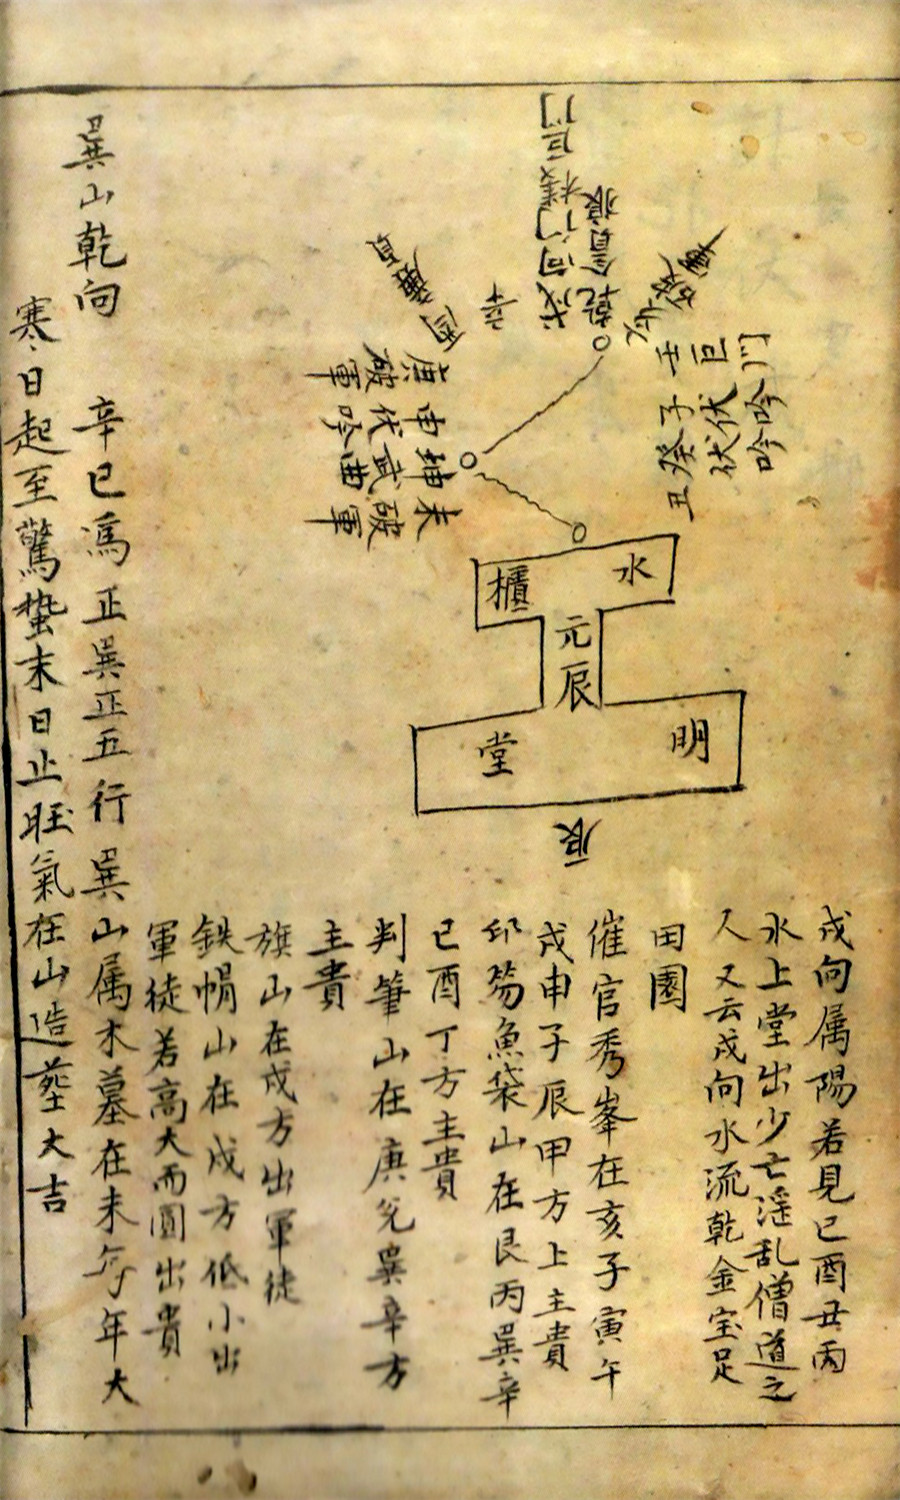 戌向属陽若見巳酉丑丙
水上堂出少亡淫乱僧道之
人又云戌向水流乾金宝足
田園
催官秀峯在亥子寅午
戌申子辰甲方上主貴
魚袋山在艮丙巽辛
巳酉丁方主貴
判筆山在庚兌巽辛方
主貴
旗山在戌方出軍徒
鉄帽山在戌方低小出
軍徒若高大而圓出貴
門
巨
門
吟
吟
壬
子
癸
丑
伏
伏
乾
戌向
門
巨門
辛
酉
庚破軍
申伏吟
坤武曲
未破軍
水
櫃
元
辰
明
堂
辰
巽山乾向
辛巳為正巽正五行巽山属木墓在未年大
寒日起至驚蛰末日止旺氣在山造塟大吉